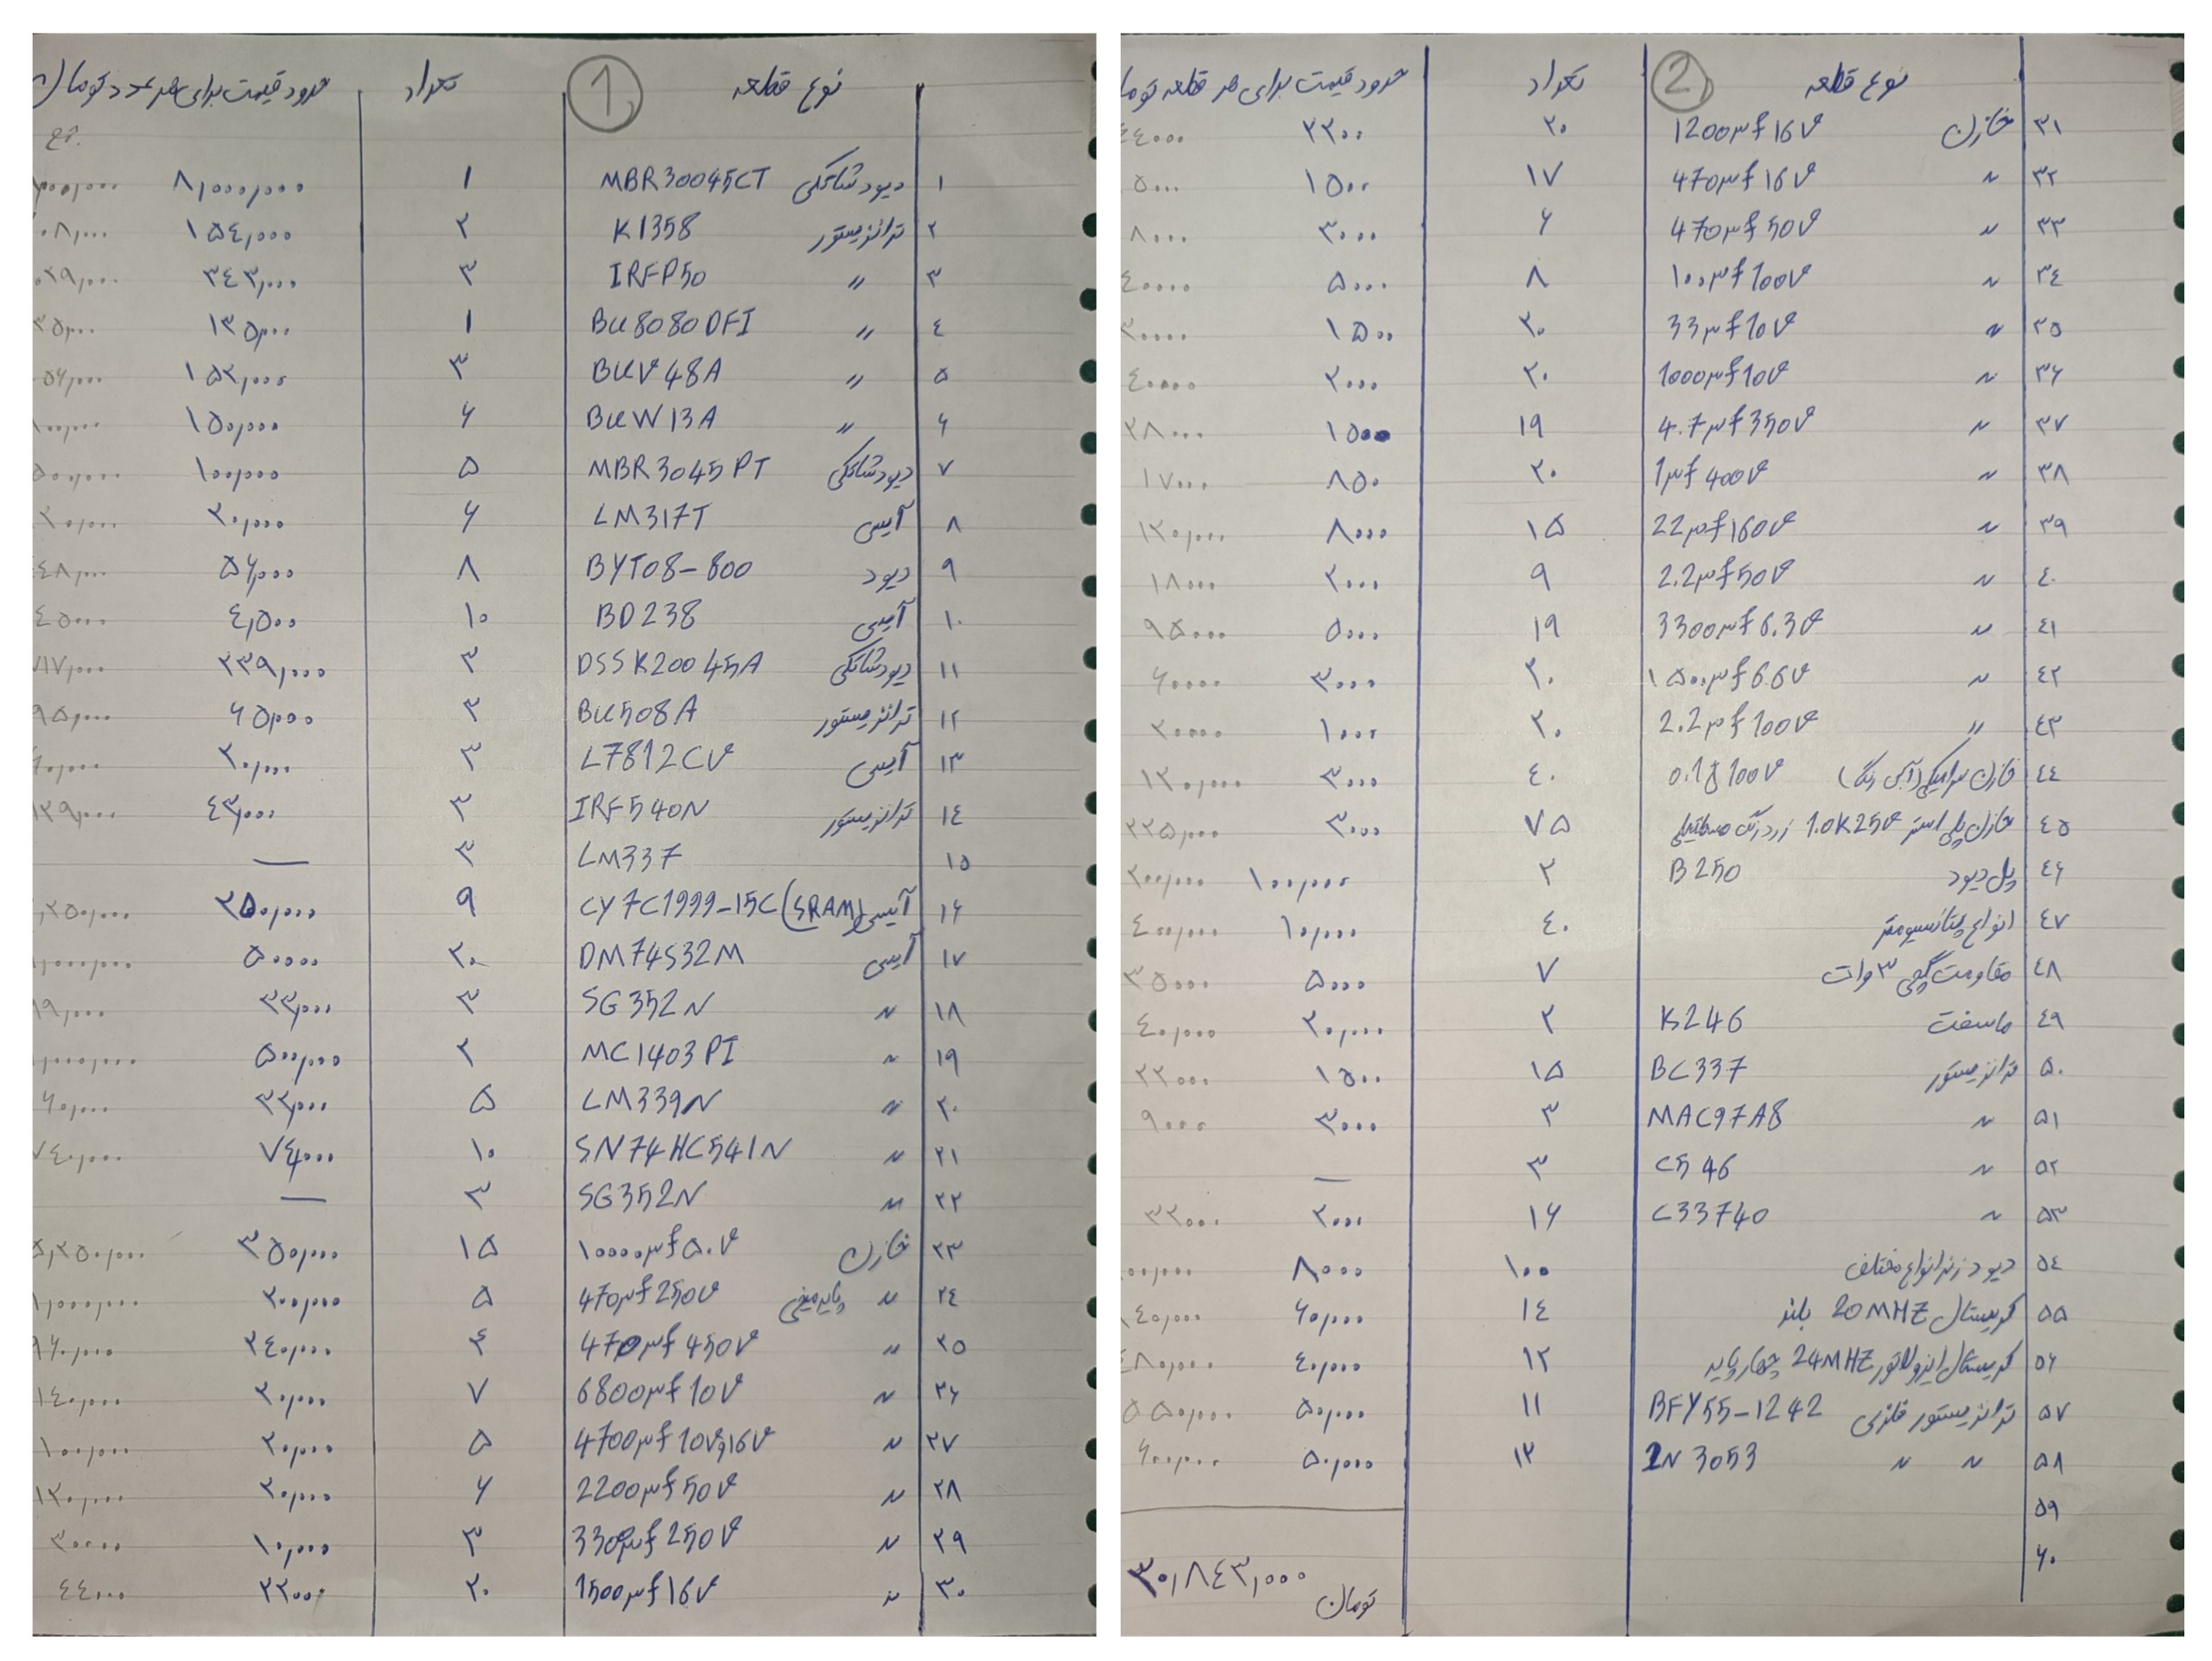 نوع قطعه ① تعداد حدود قیمت برای هر عدد تومان
۱ دیود شاتکی MBR30045CT ۱ ۸,۰۰۰,۰۰۰
۲ ترانزیستور K1358 ۲ ۱۵٤,۰۰۰ ۰۸,۰۰۰
۳ " IRFP50 ۳ ۳٤۳,۰۰۰ ۰۲۹,۰۰۰
٤ " BU8080DFI ۱ ۱۳۵,۰۰۰ ۳۵,۰۰۰
۵ " BUV48A ۳ ۱۵۲,۰۰۰ ۵۶,۰۰۰
۶ " BUW13A ۶ ۱۵۰,۰۰۰ ۰۰,۰۰۰
۷ دیود شاتکی MBR3045PT ۵ ۱۰۰,۰۰۰ ۵۰۰,۰۰۰
۸ آیسی LM317T ۶ ۲۰,۰۰۰ ۲۰,۰۰۰
۹ دیود BYT08-800 ۸ ۵۶,۰۰۰ ٤٤۸,۰۰۰
۱۰ آیسی BD238 ۱۰ ٤,۵۰۰ ٤۵۰۰۰
۱۱ دیود شاتکی DSSK20045A ۳ ۲۳۹,۰۰۰ ۷۱۷,۰۰۰
۱۲ ترانزیستور BU508A ۳ ۶۵,۰۰۰ ۹۵,۰۰۰
۱۳ آیسی L7812CV ۳ ۲۰,۰۰۰ ۶۰,۰۰۰
۱٤ ترانزیستور IRF540N ۳ ٤۳,۰۰۰ ۱۲۹,۰۰۰
۱۵ LM337 ۳ —
۱۶ آیسی (SRAM) CY7C1999-15C ۹ ۲۵۰,۰۰۰ ,۲۵۰,۰۰۰
۱۷ آیسی DM74S32M ۲۰ ۵۰۰۰۰ ۱,۰۰۰,۰۰۰
۱۸ " SG352N ۳ ۳۳,۰۰۰ ۹۹,۰۰۰
۱۹ " MC1403PI ۲ ۵۰۰,۰۰۰ ۱,۰۰۰,۰۰۰
۲۰ " LM339N ۵ ۳۲,۰۰۰ ۶۰,۰۰۰
۲۱ " SN74HC541N ۱۰ ۷٤,۰۰۰ ۷٤۰,۰۰۰
۲۲ " SG352N ۳ —
۲۳ خازن ۱۰۰۰۰μf ۵۰V ۱۵ ۳۵۰,۰۰۰ ۵,۲۵۰,۰۰۰
۲٤ " پایه میخی 470μf 250V ۵ ۲۰۰,۰۰۰ ۱,۰۰۰,۰۰۰
۲۵ " 470μf 450V ٤ ۲٤۰,۰۰۰ ۹۶۰,۰۰۰
۲۶ " 6800μf 10V ۷ ۲۰,۰۰۰ ۱٤۰,۰۰۰
۲۷ " 4700μf 10V,16V ۵ ۲۰,۰۰۰ ۱۰۰,۰۰۰
۲۸ " 2200μf 50V ۶ ۲۰,۰۰۰ ۱۲۰,۰۰۰
۲۹ " 330μf 250V ۳ ۱۰,۰۰۰ ۳۰۰۰۰
۳۰ " 1500μf 16V ۲۰ ۲۲۰۰ ٤٤۰۰۰
نوع قطعه ② تعداد حدود قیمت برای هر قطعه توما
۳۱ خازن 1200μf 16V ۲۰ ۲۲۰۰ ٤٤۰۰۰
۳۲ " 470μf 16V ۱۷ ۱۵۰۰ ۵۰۰۰
۳۳ " 470μf 50V ۶ ۳۰۰۰ ۸۰۰۰
۳٤ " ۱۰۰μf 100V ۸ ۵۰۰۰ ٤۰۰۰۰
۳۵ " 33μf 10V ۲۰ ۱۵۰۰ ۳۰۰۰۰
۳۶ " 1000μf 10V ۲۰ ۲۰۰۰ ٤۰۰۰۰
۳۷ " 4.7μf 350V ۱۹ ۱۵۰۰ ۲۸۰۰۰
۳۸ " 1μf 400V ۲۰ ۸۵۰ ۱۷۰۰۰
۳۹ " 22μf 160V ۱۵ ۸۰۰۰ ۱۲۰,۰۰۰
٤۰ " 2.2μf 50V ۹ ۲۰۰۰ ۱۸۰۰۰
٤۱ " 3300μf 6.3V ۱۹ ۵۰۰۰ ۹۵۰۰۰
٤۲ " ۱۵۰۰μf 6.6V ۲۰ ۳۰۰۰ ۶۰۰۰۰
٤۳ " 2.2μf 100V ۲۰ ۱۰۰۰ ۲۰۰۰۰
٤٤ خازن سرامیکی (آبی رنگ) 0.1J 100V ٤۰ ۳۰۰۰ ۱۲۰,۰۰۰
٤۵ خازن پلی استر 1.0K25V زرد رنگ مستطیلی ۷۵ ۳۰۰۰ ۲۲۵,۰۰۰
٤۶ پل دیود B250 ۲ ۱۰۰,۰۰۰ ۲۰۰,۰۰۰
٤۷ انواع پتانسیومتر ٤۰ ۱۰,۰۰۰ ٤۰۰,۰۰۰
٤۸ مقاومت گچی ۳ وات ۷ ۵۰۰۰ ۳۵۰۰۰
٤۹ ماسفت K246 ۲ ۲۰,۰۰۰ ٤۰,۰۰۰
۵۰ ترانزیستور BC337 ۱۵ ۱۵۰۰ ۲۲۰۰۰
۵۱ " MAC97A8 ۳ ۳۰۰۰ ۹۰۰۰
۵۲ " C546 ۳ —
۵۳ " C33740 ۱۶ ۲۰۰۰ ۳۲۰۰۰
۵٤ دیود زنر انواع مختلف ۱۰۰ ۸۰۰۰ ۰۰,۰۰۰
۵۵ کریستال 20MHZ بلند ۱٤ ۶۰,۰۰۰ ٤۰,۰۰۰
۵۶ کریستال ایزولاتور 24MHZ چهارپایه ۱۲ ٤۰,۰۰۰ ٤۸۰,۰۰۰
۵۷ ترانزیستور فلزی BFY55-1242 ۱۱ ۵۰,۰۰۰ ۵۵۰,۰۰۰
۵۸ " " 2N3053 ۱۲ ۵۰,۰۰۰ ۶۰۰,۰۰۰
۵۹
۶۰
۳۰,۸٤۳,۰۰۰ تومان